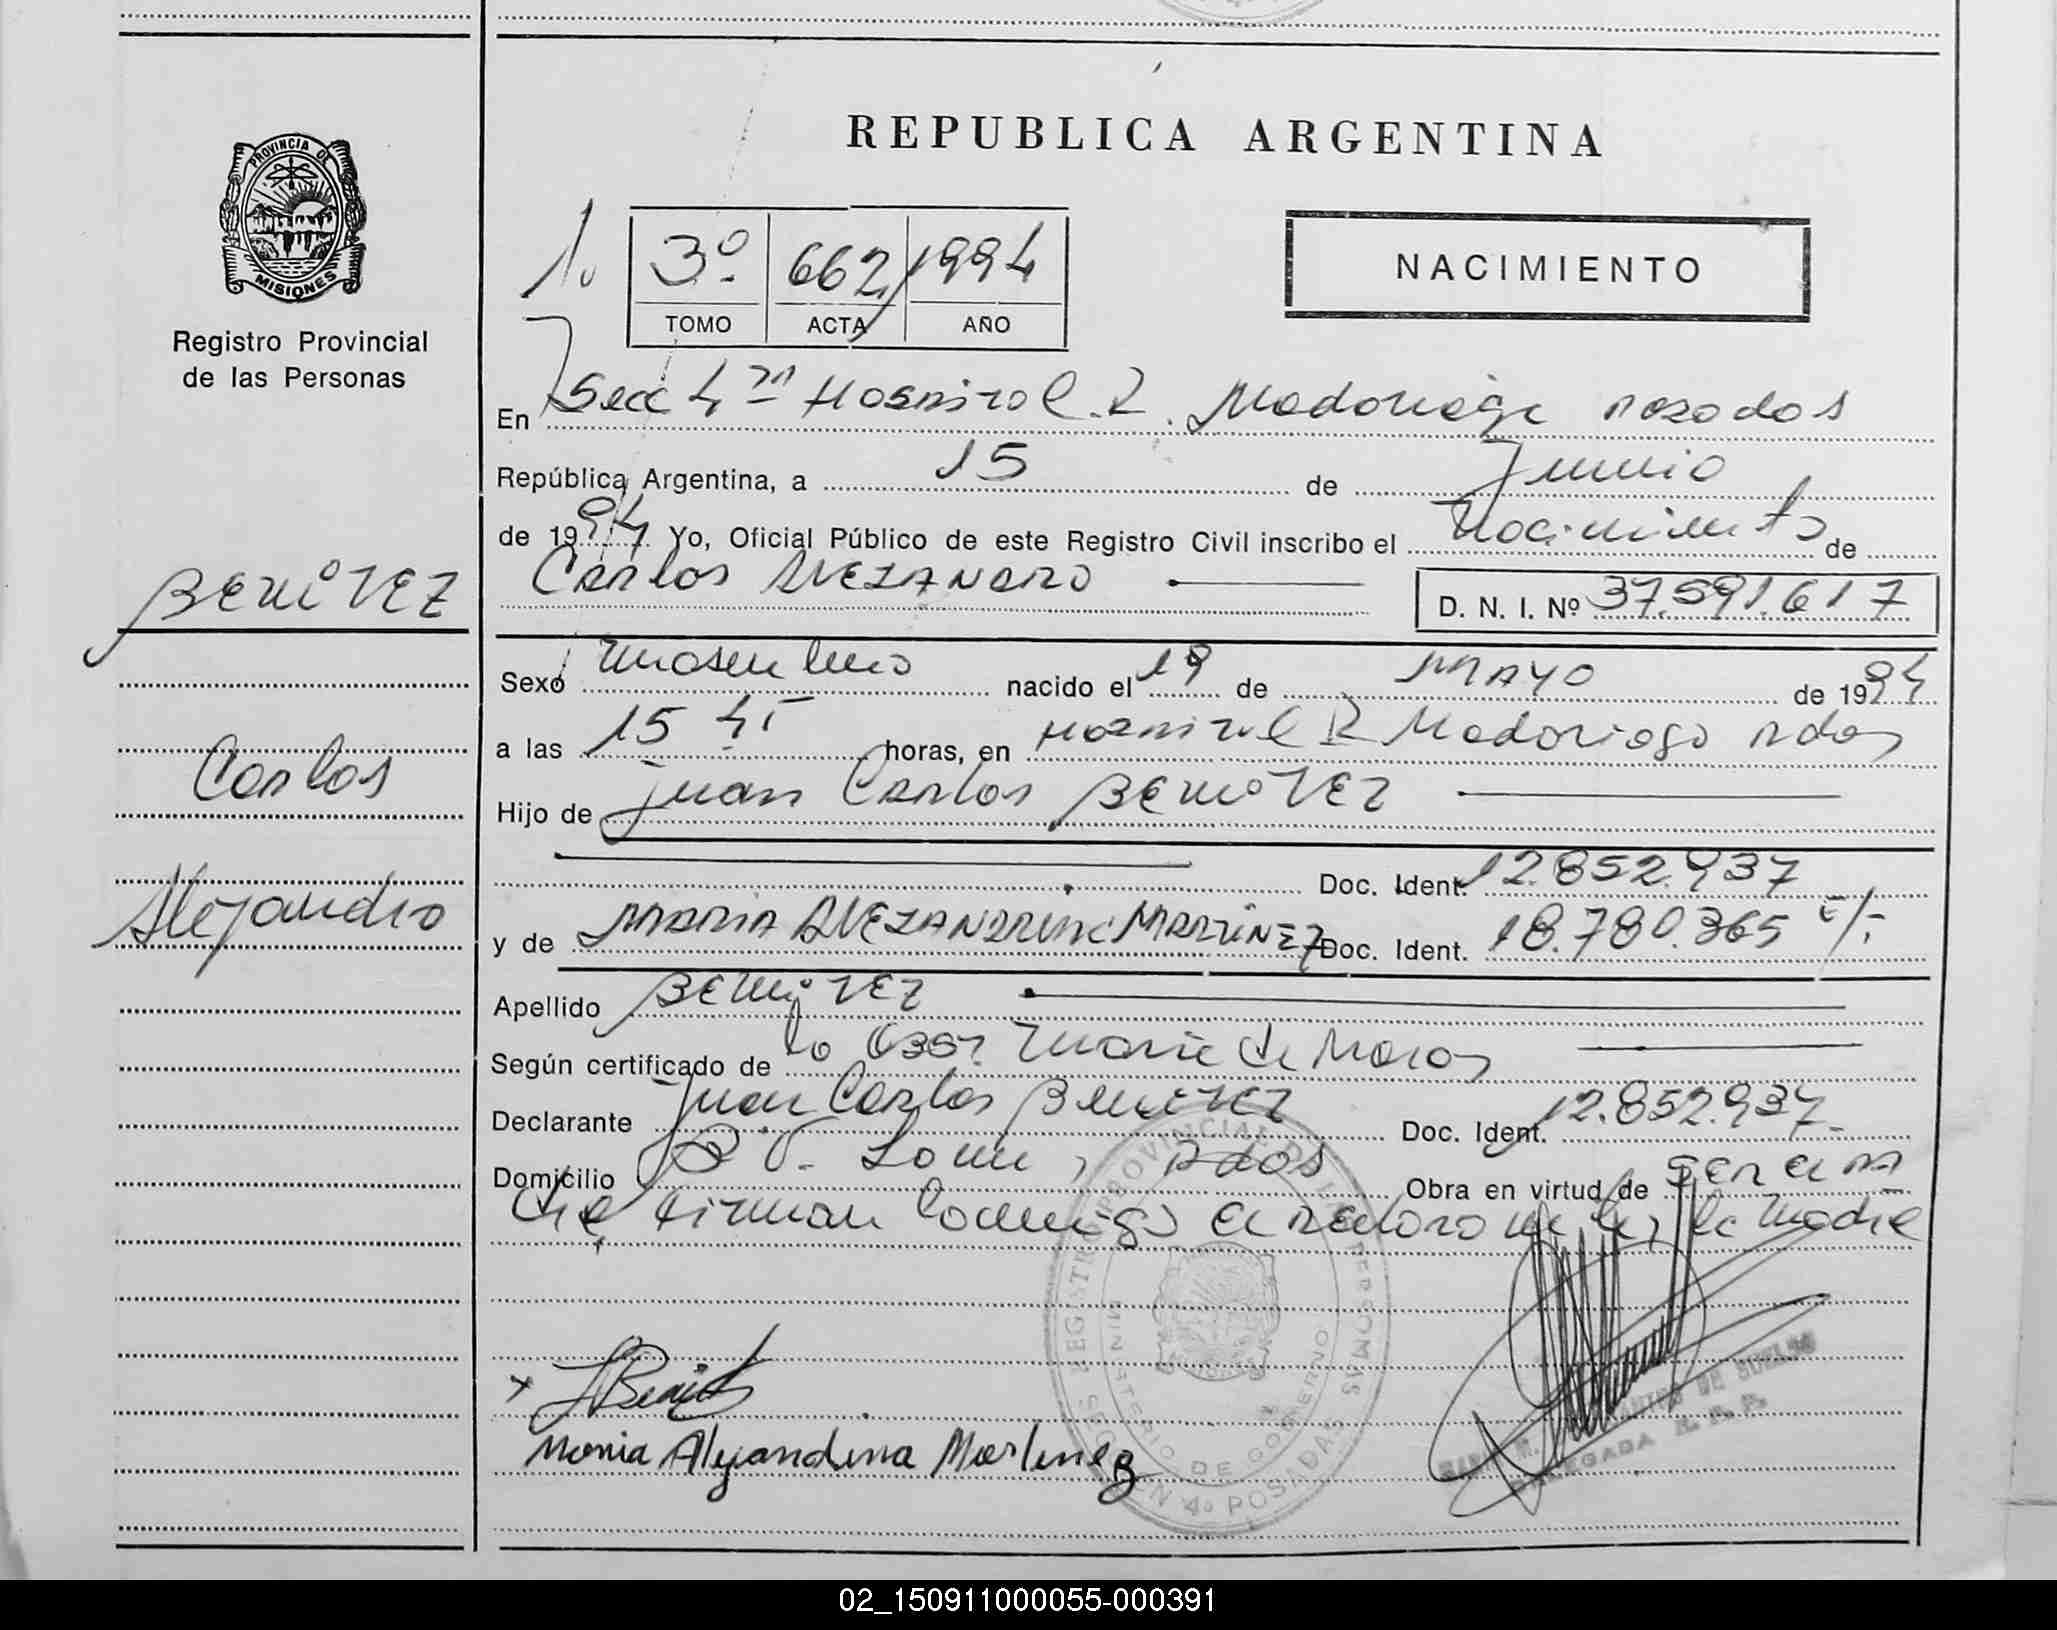 REPUBLICA ARGENTINA
PROVINCIA DE
MISIONES
Registro Provincial
de las Personas
3º 662 1994
TOMO ACTA AÑO
NACIMIENTO
En Secc 4ta Hospital R. Madariaga Posadas
República Argentina, a 15 de Junio
de 1994 Yo, Oficial Público de este Registro Civil inscribo el Nacimiento de
Carlos ALEJANDRO D. N. I. Nº 37.591.617
BENiTEZ
Carlos
Alejandro
Sexo Masculino nacido el 19 de MAYO de 1994
a las 15 45 horas, en Hospital R Madariaga Pdas
Hijo de Juan Carlos BENiTEZ
Doc. Ident. 12.852.937
y de MARIA ALEJANDRINA MARTINEZ Doc. Ident. 18.780.365
Apellido BENiTEZ
Según certificado de la Obst. Maria de
Declarante Juan Carlos Benitez Doc. Ident. 12.852.937
Domicilio Pdas Obra en virtud de ser el PP
que firman conmigo el declarante y la Madre
Maria Alejandrina Martinez
REGISTRO PROVINCIAL DE LAS PERSONAS
MINISTERIO DE GOBIERNO
SECCION 4º POSADAS
DELEGADA
02_150911000055-000391